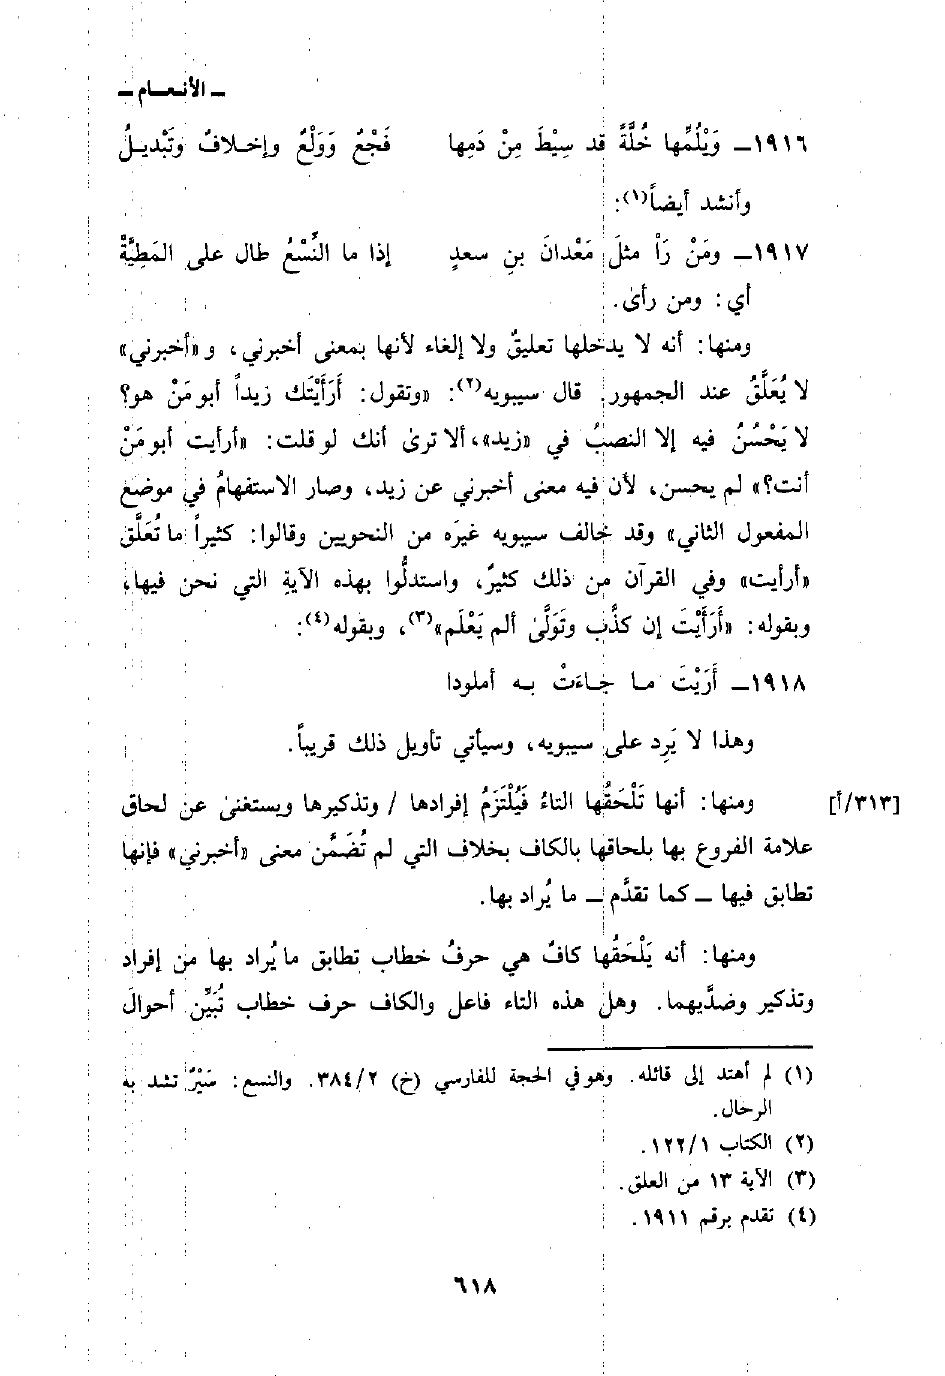 ــ الأنعـام ــ
١٩١٦ــ وَيْلُمِّها خُلَّةً قد سِيْطَ مِنْ دَمِها فَجْعٌ وَوَلْعٌ وإخـلافٌ وتَبْديـلُ
وأنشد أيضاً(١):
١٩١٧ــ ومَنْ رَاْ مثلَ مَعْدانَ بنِ سعدٍ إذا ما النِّسْعُ طال على المَطِيَّةْ
أي: ومن رأى.
ومنها: أنه لا يدخلها تعليقٌ ولا إلغاء لأنها بمعنى أخبرني، و «أخبرني»
لا يُعَلَّقُ عند الجمهور. قال سيبويه(٢): «وتقول: أَرَأَيْتَك زيداً أبو مَنْ هو؟
لا يَحْسُنُ فيه إلا النصبُ في «زيد»، ألا ترى أنك لو قلت: «أرأيت أبو مَنْ
أنت؟» لم يحسن، لأن فيه معنى أخبرني عن زيد، وصار الاستفهامُ في موضع
المفعول الثاني» وقد خالف سيبويه غيرَه من النحويين وقالوا: كثيراً ما تُعَلَّق
«أرأيت» وفي القرآن من ذلك كثيرٌ، واستدلُّوا بهذه الآيةِ التي نحن فيها،
وبقوله: «أَرَأَيْتَ إن كذَّب وتَوَلَّى ألم يَعْلَم»(٣)، وبقوله(٤):
١٩١٨ــ أَرَيْتَ مـا جـاءَتْ بـه أملودا
وهذا لا يَرِد على سيبويه، وسيأتي تأويل ذلك قريباً.
ومنها: أنها تَلْحَقُها التاءُ فَيُلْتَزَمُ إفرادها / وتذكيرها ويستغنى عن لحاق [٣١٣/أ]
علامة الفروع بها بلحاقها بالكاف بخلاف التي لم تُضَمَّن معنى «أخبرني» فإنها
تطابق فيها ــ كما تقدَّم ــ ما يُراد بها.
ومنها: أنه يَلْحَقُها كافٌ هي حرفُ خطاب تطابق ما يُراد بها من إفراد
وتذكير وضدَّيهما. وهل هذه التاء فاعل والكاف حرف خطاب تُبَيِّن أحوالَ
(١) لم أهتد إلى قائله. وهو في الحجة للفارسي (خ) ٣٨٤/٢. والنسع: سَيْرٌ تشد به
الرحال.
(٢) الكتاب ١٢٢/١.
(٣) الآية ١٣ من العلق.
(٤) تقدم برقم ١٩١١.
٦١٨